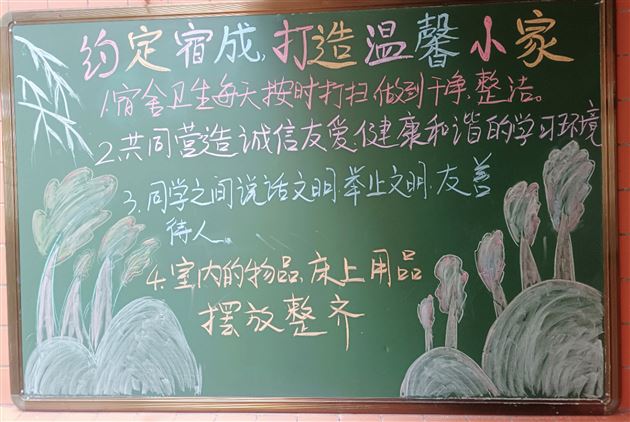 约定宿成,打造温馨小家
1.宿舍卫生每天按时打扫,做到干净,整洁。
2.共同营造诚信友爱,健康和谐的学习环境
3.同学之间说话文明.举止文明.友善
待人。
4.室内的物品,床上用品
摆放整齐